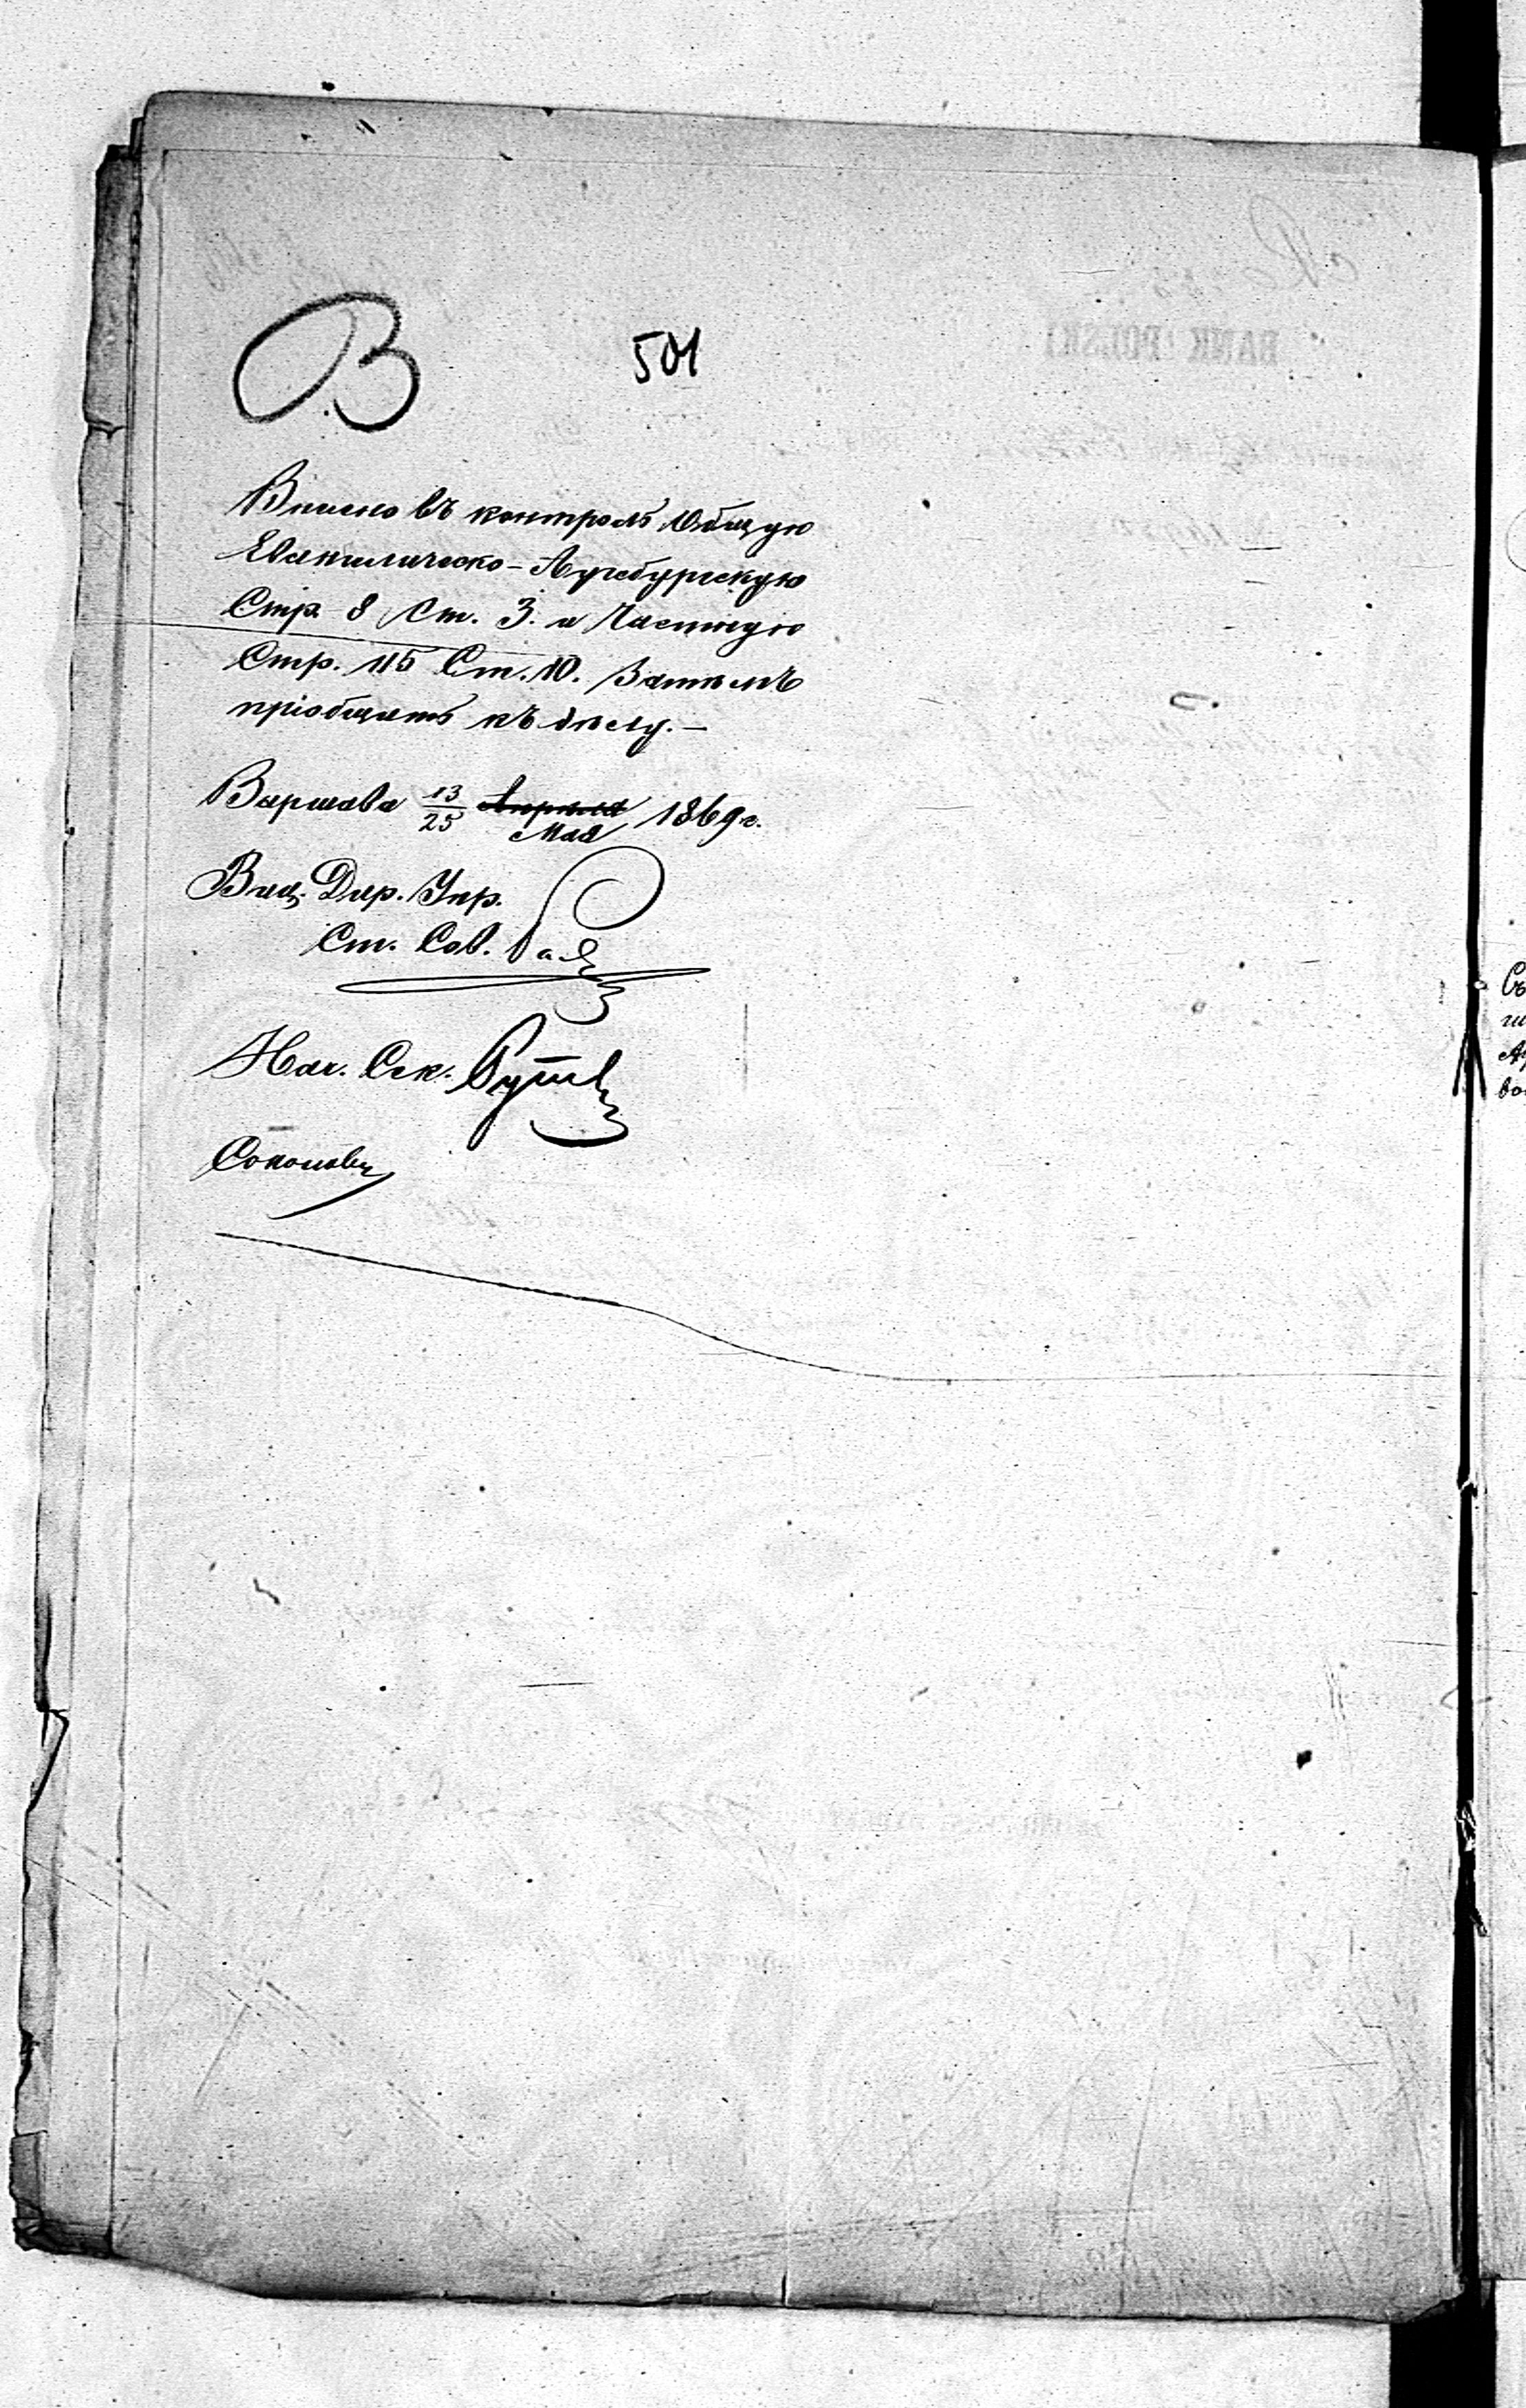 В
501
Вписано въ контроль Общую
Евангелическо-Аугсбургскую
Стр. 8 Ст. 3. и Частную
Стр. 115 Ст. 10. Затѣмъ
пріобщить къ дѣлу.—
Варшава 13/25 Апрѣля Мая 1869 г.
Виц. Дир. Упр.
Ст. Сов.
Нач. Сек.
Соколовъ
BANK POLSKI